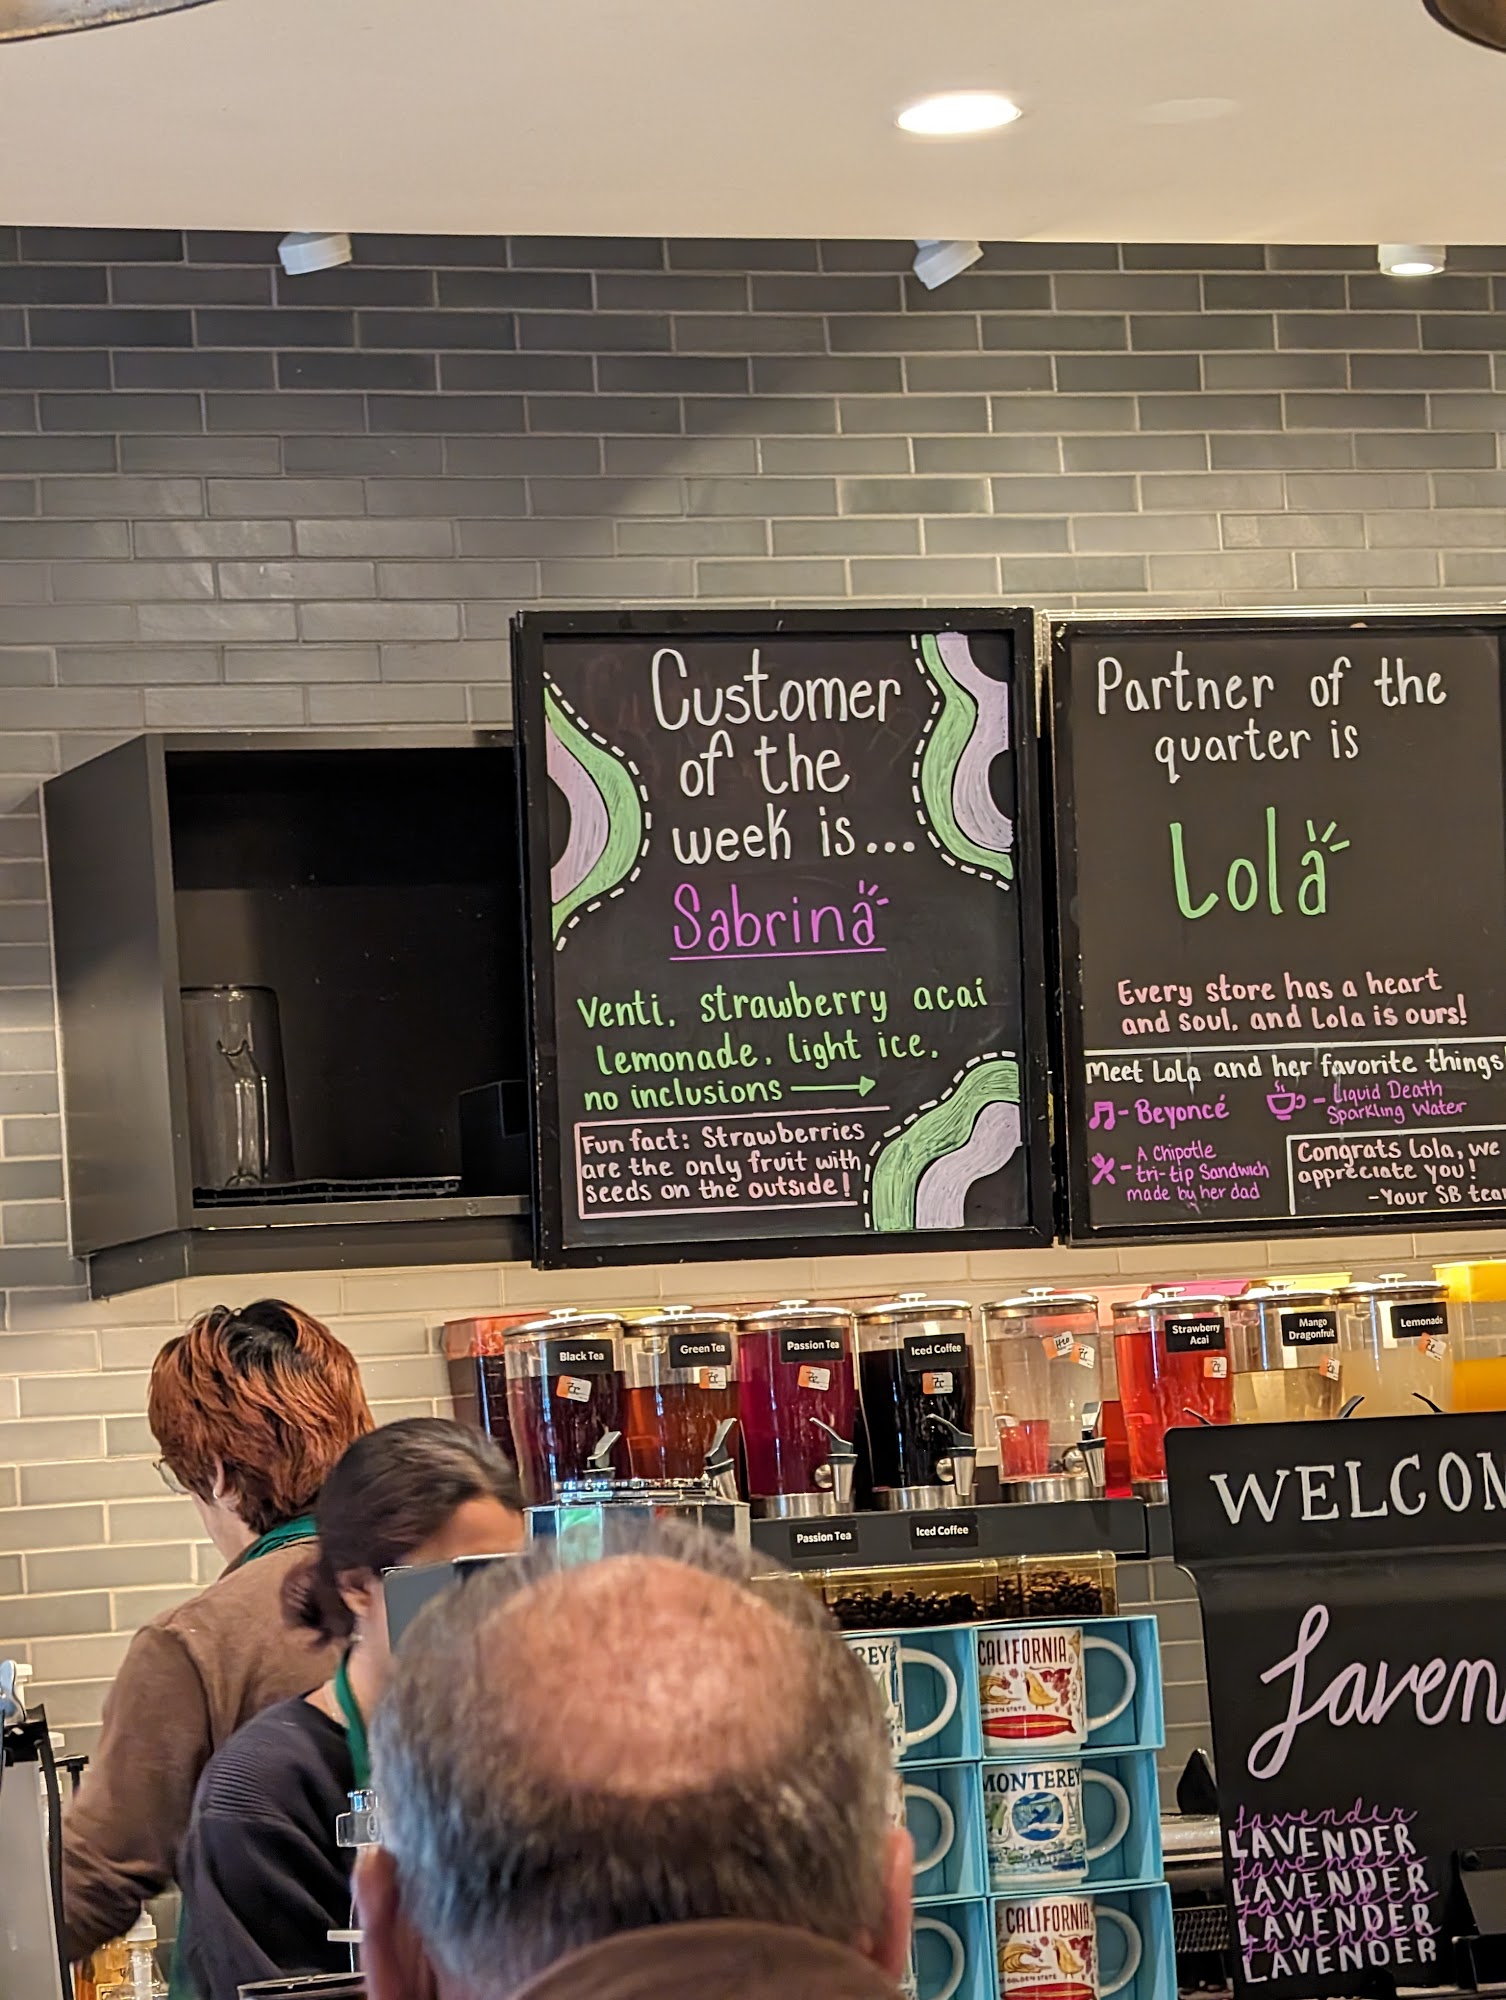 Customer
of the
week is...
Sabrina
Venti, strawberry acai
Lemonade, light ice,
no inclusions
Fun fact: Strawberries
are the only fruit with
seeds on the outside!
Partner of the
quarter is
Lola
Every store has a heart
and soul, and Lola is ours!
Meet Lola and her favorite things
- Beyoncé
- Liquid Death
Sparkling Water
- A Chipotle
tri-tip Sandwich
made by her dad
Congrats Lola, we
appreciate you!
-Your SB tea
Black Tea
Green Tea
Passion Tea
Iced Coffee
H2O
Strawberry
Acai
Mango
Dragonfruit
Lemonade
Passion Tea
Iced Coffee
WELCOM
Laven
lavender
LAVENDER
lavender
LAVENDER
lavender
LAVENDER
lavender
LAVENDER
REY
CALIFORNIA
GOLDEN STATE
MONTEREY
CALIFORNIA
GOLDEN STATE